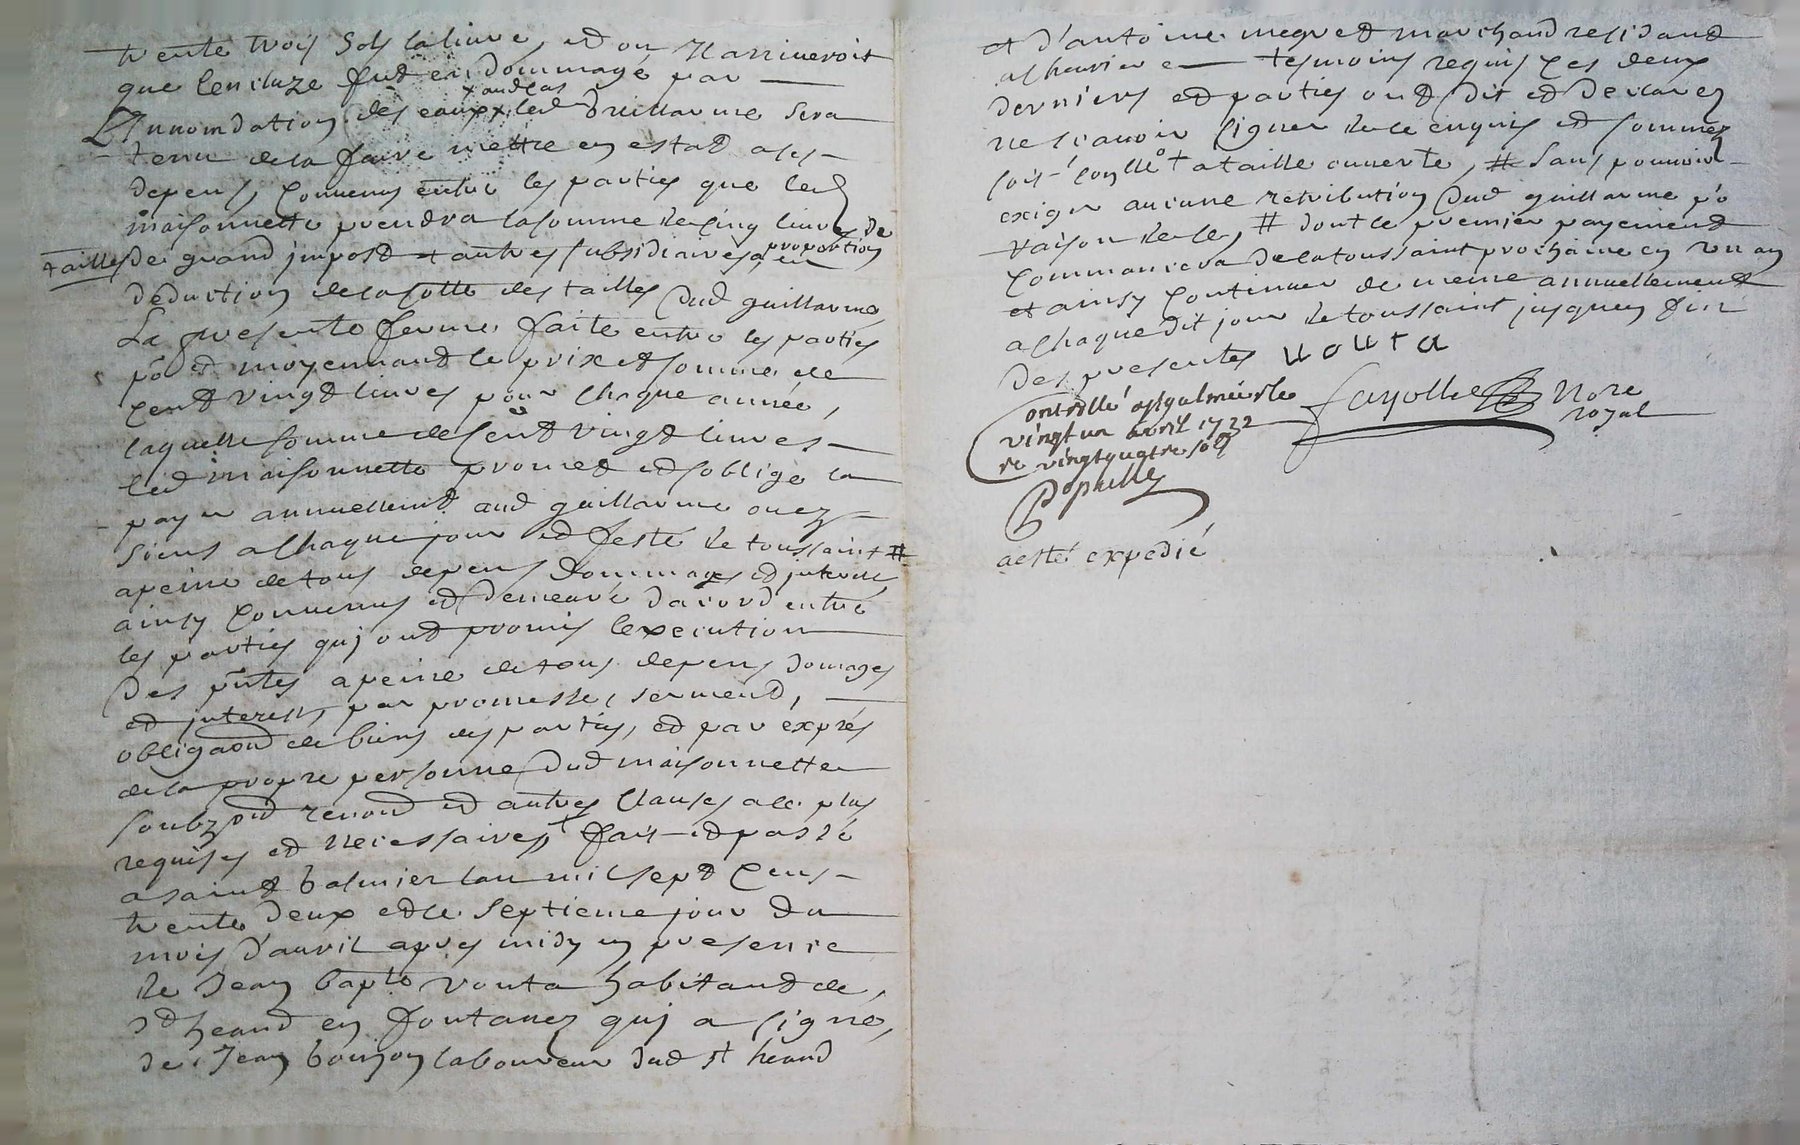 trente trois sols la livre, et ou Il arriveroit
que lencluze fut endommagé par
L'Innondation des eaux x aud cas x led Guillarme sera
tenu de la faire mettre en estat a ses
depens, Convenus entre les parties que led
maisonnette prendra la somme de Cinq livres de
tailles de grand jmpost et autres subsidiaires a proportion en
deduction de la cotte des tailles dud guillarme
La presente ferme faite entre les parties
po.r et moyennant le prix et somme de
Cent vingt livres pour Chaque année,
laquelle somme de Cent vingt livres
led maisonnette promet et soblige la
payer annuellemt aud guillarme ou ez
siens a Chaque jour et feste de toussaint #
a peine de tous depens dommages et jnterest
ainsy Convenus et demeuré dacord entre
les parties quj ont promis lexecution
Des pntes a peine de tous depens domages
et jnterests, par promesse, serment,
obligaon de biens des parties, et par exprés
de la propre personne dud maisonnette
soubzon renon et autres Clauses a ce plus
requises et necessaires, + fait et passé
a saint balmier lan mil sept Cens
trente deux et le septieme jour du
mois d'avril apres midy en presence
de Jean bapte vouta habitant de
st heand en fontanez quj a signé,
de Jean boujon laboureur dud st heand
et d'antoine megret marchand residant
a Chevriere tesmoins requis Ces deux
derniers et parties ont dit et declarez
ne scavoir signer de ce enquis et sommez
a taille ouverte, # sans pouvoir
exiger aucune retribution dud guillarme po
raison de ce, # dont le premier payement
Commancera de la toussaint prochaine en un an
et ainsy Continuer de meme annuellement
a Chaque dit jour de toussaint jusques fin
des presentes vouta
Fayolle Nore
royal
Controllé a st galmier le
vingt un avril 1732
re vingt quatre sols
a esté expedié